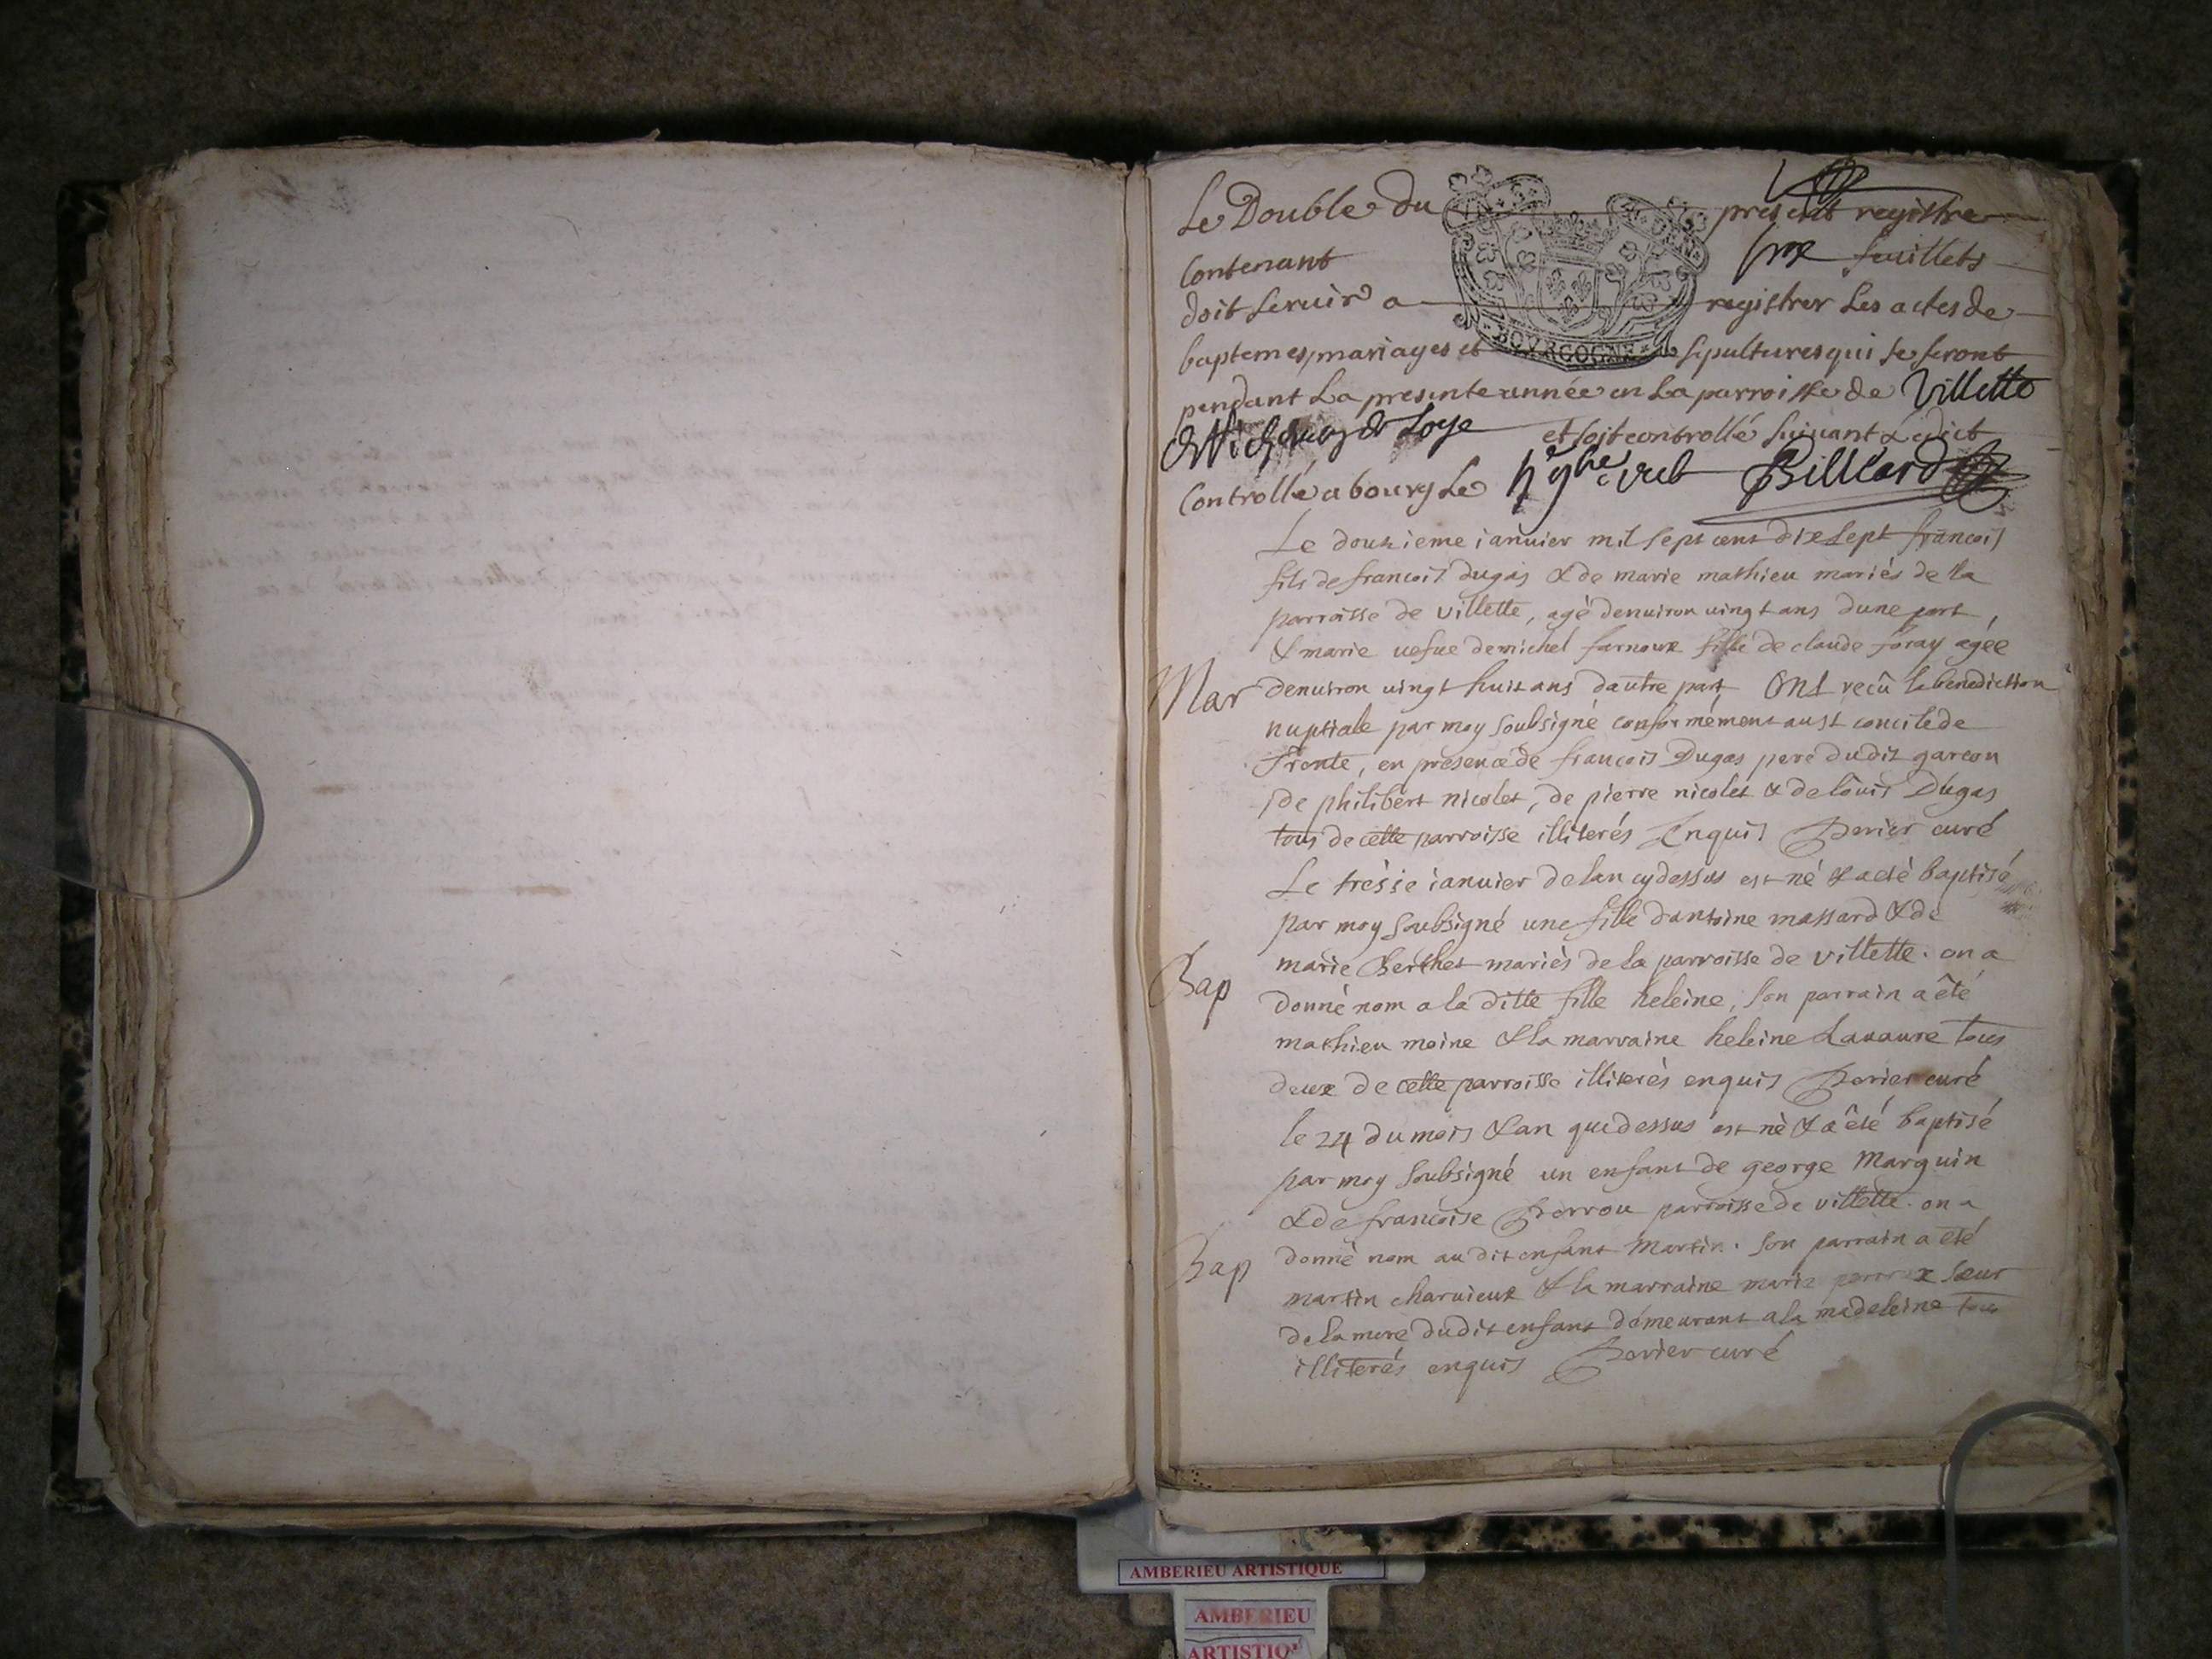 Le Double du present registre
Contenant six feuillets
doit seruir a registrer Les actes de
baptemes, mariages et sepultures qui se feront
BOURGOGNE
pendant La presente année en La parroisse de Villette
et soit controllé suiuant L'edict
Controllé a bourg Le Billiard
Le dousieme ianuier mil sept cent dixsept francois
fils de francois dugas & de marie mathieu mariés de la
parroisse de villette, agé denuiron uingt ans dune part,
& marie uefue de michel farnoux fille de claude foray agée
Mar denuiron uingt huit ans dautre part ont reçû la benediction
nuptiale par moy soubsigné conformément au st concile de
trente, en presence de francois Dugas pere dudit garcon
de philibert nicolet, de pierre nicolet & de louis Dugas
tous de cette parroisse illiterés Enquis Perier curé
Le trèsie ianuier de lan cydessus est né & a eté baptisé
par moy soubsigné une fille dantoine massard & de
marie Berthet mariés de la parroisse de villette. on a
Bap donné nom a la ditte fille heleine, son parrain a êté
mathieu moine & la marraine heleine Lauaure tous
deux de cette parroisse illiterès enquis Perier curé
le 24 du mois & an que dessus est nè & a êté baptisé
par moy soubsigné un enfant de george Marguin
& de francoise Perrou parroisse de villette. on a
Bap donné nom au dit enfant Martin. son parrain a eté
martin charuieux & la marraine marie soeur
de la mere dudit enfant demeurant a la madeleine tous
illiterés enquis Perier curé
AMBERIEU ARTISTIQUE
AMBERIEU
ARTISTIQ